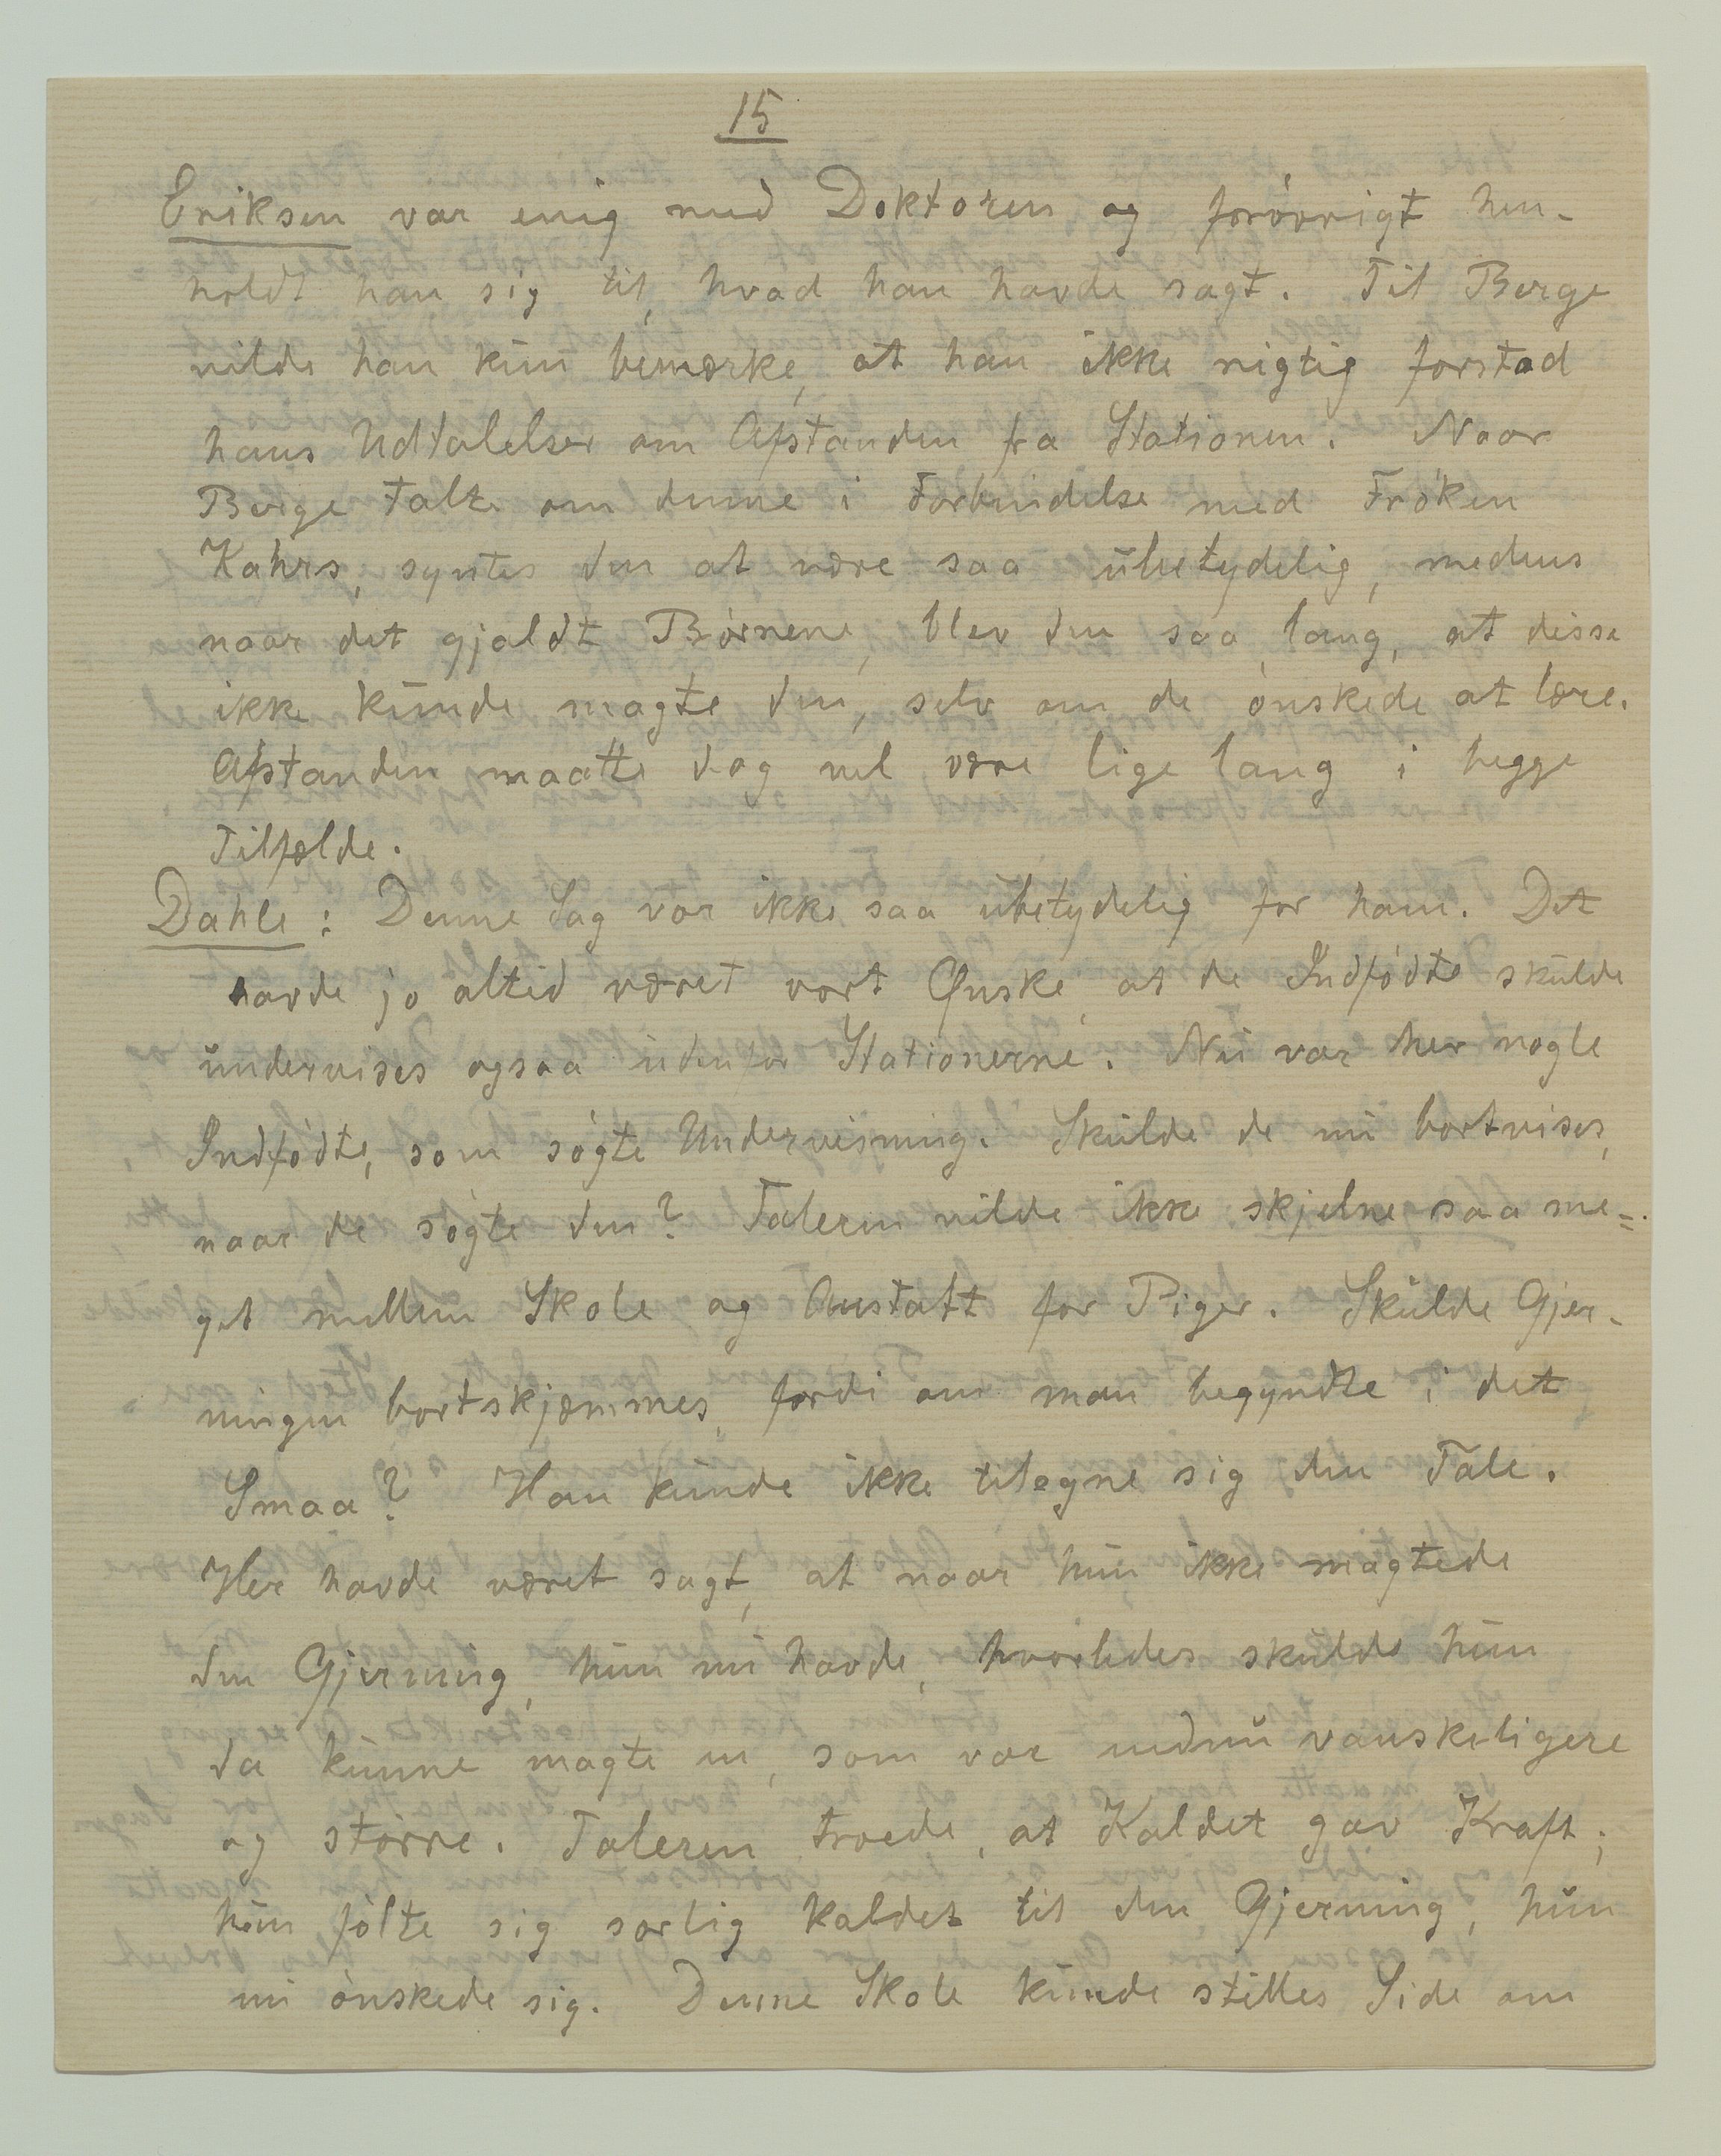 15
Eriksen var enig med Doktoren og forøvrigt hen-
holdt han sig til, hvad han havde sagt. Til Berge
vilde han kun bemærke, at han ikke rigtig forstod
hans Udtalelser om Afstanden fra Stationen. Naar
Berge talte om denne i Forbindelse med Frøken
Kahrs, syntes den at være saa ubetydelig, medens
naar det gjaldt Børnene, blev den saa lang, at disse
ikke kunde magte den, selv om de ønskede at lære.
Afstanden maatte dog vel være lige lang i begge
Tilfælde.
Dahle: Denne Sag var ikke saa ubetydelig for ham. Det
havde jo altid været vort Ønske, at de Indfødte skulde
undervises ogsaa udenfor Stationerne. Nu var her nogle
Indfødte, som søgte Undervisning. Skulde de nu bortvises,
naar de søgte den? Taleren vilde ikke skjelne saa me=
get mellem Skole og Anstalt for Piger. Skulde Gjer-
ningen bortskjæmmes, fordi om man begyndte i det
Smaa? Han kunde ikke tilegne sig den Tale.
Her havde været sagt, at naar hun ikke magtede
den Gjerning, hun nu havde, hvorledes skulde hun
da kunne magte en, som var endnu vanskeligere
og større. Taleren troede, at Kaldet gav Kraft;
hun følte sig særlig kaldet til den Gjerning, hun
nu ønskede sig. Denne Skole kunde stilles Side om